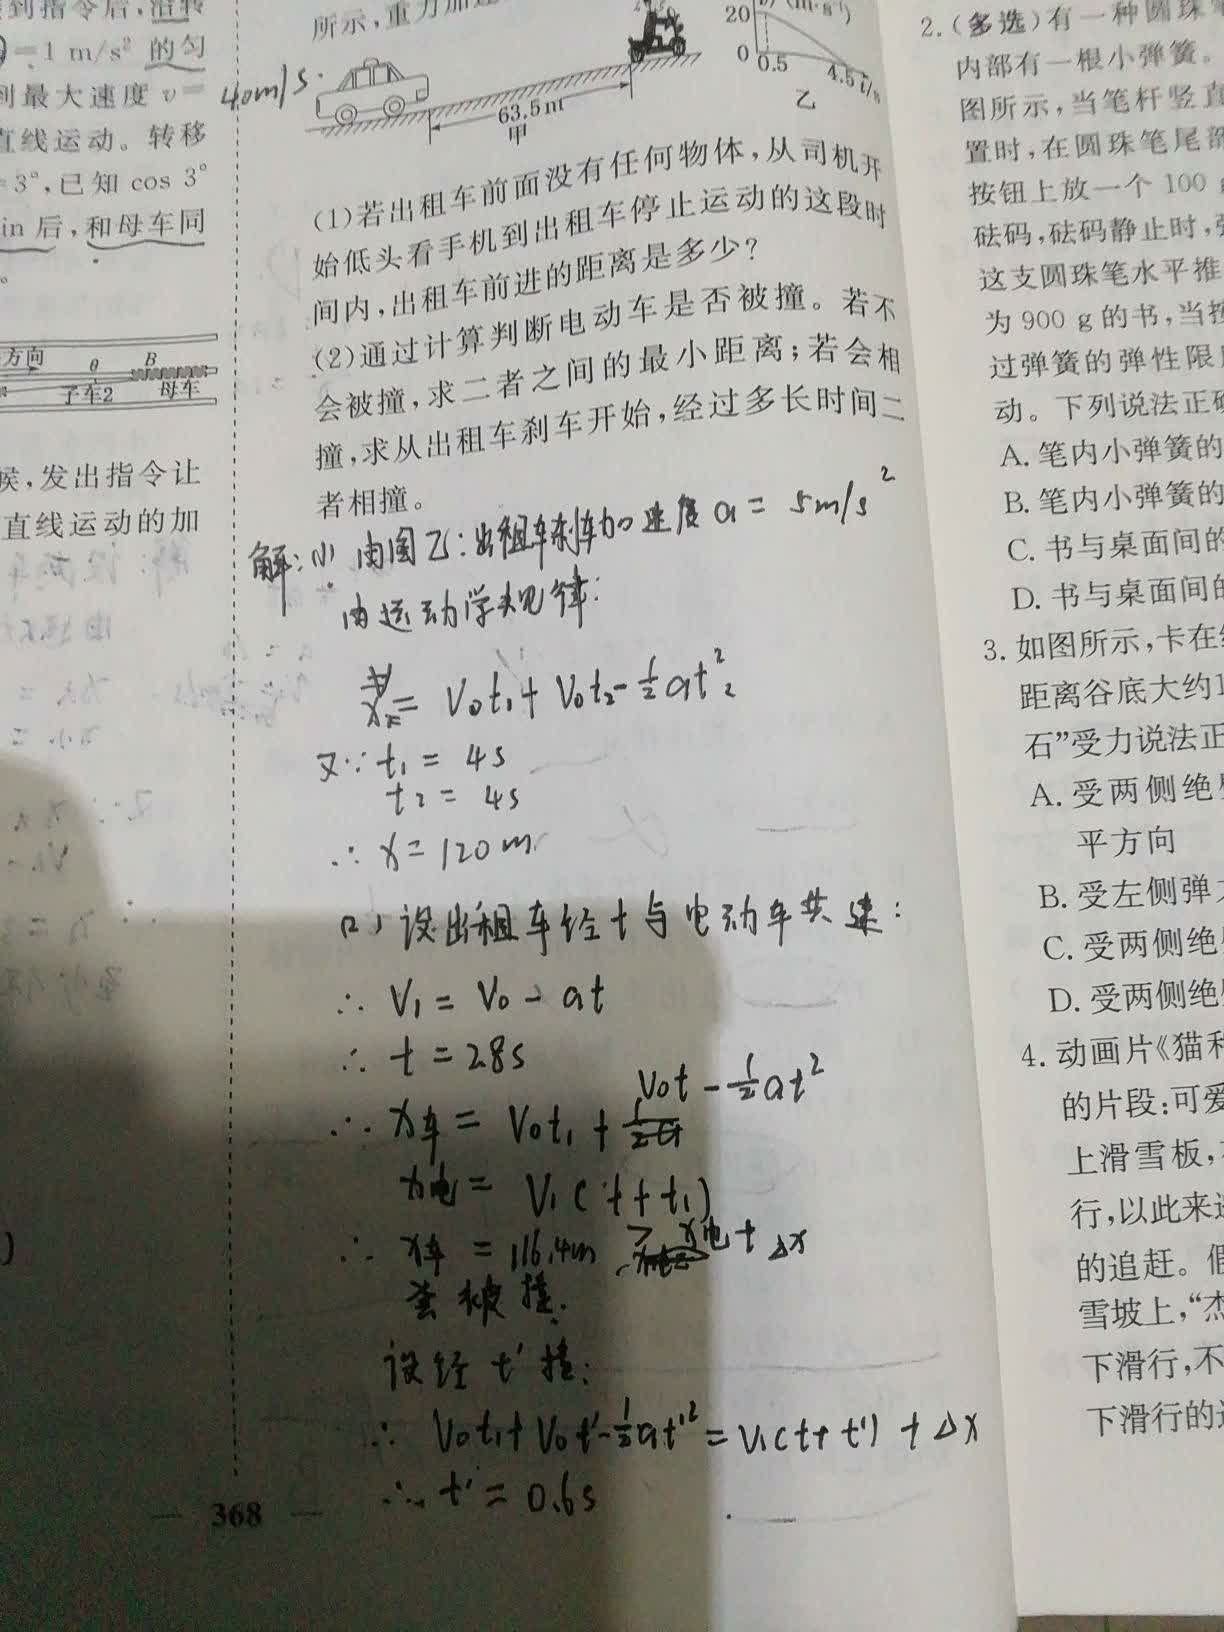 到指令后,沿转
=1 m/s² 的匀
到最大速度 v=
直线运动。转移
=3°,已知 cos 3°
in 后,和母车同
方向
θ
B
子车2
母车
候,发出指令让
直线运动的加
所示,重力加速
40m/s.
63.5 m
甲
20
0
0.5
4.5 t/s
乙
(1)若出租车前面没有任何物体,从司机开
始低头看手机到出租车停止运动的这段时
间内,出租车前进的距离是多少?
(2)通过计算判断电动车是否被撞。若不
会被撞,求二者之间的最小距离;若会相
撞,求从出租车刹车开始,经过多长时间二
者相撞。
解:(1) 由图乙:出租车刹车加速度 a = 5m/s²
由运动学规律:
x = V₀t₁+ V₀t₂-½at₂²
又∵ t₁ = 4s
t₂ = 4s
∴ x=120m
(2) 设出租车经t与电动车共速:
∴ V₁ = V₀ - at
∴ t = 2.8s
V₀t-½at²
∴ x车 = V₀t₁ +
x电 = V₁(t+t₁)
∴ x车 = 116.4m > x电 + Δx
会被撞.
设经 t' 撞:
∴ V₀t₁+ V₀t'-½at'² = V₁(t+t') + Δx
∴ t' = 0.6s
368
2.(多选)有一种圆珠笔
内部有一根小弹簧。
图所示,当笔杆竖直
置时,在圆珠笔尾部
按钮上放一个 100
砝码,砝码静止时,弹
这支圆珠笔水平推
为 900 g 的书,当按
过弹簧的弹性限
动。下列说法正确
A. 笔内小弹簧的
B. 笔内小弹簧的
C. 书与桌面间的
D. 书与桌面间的
3. 如图所示,卡在
距离谷底大约1
石”受力说法正
A. 受两侧绝壁
平方向
B. 受左侧弹力
C. 受两侧绝
D. 受两侧绝
4. 动画片《猫和
的片段:可爱
上滑雪板,
行,以此来
的追赶。假
雪坡上,“杰
下滑行,不
下滑行的